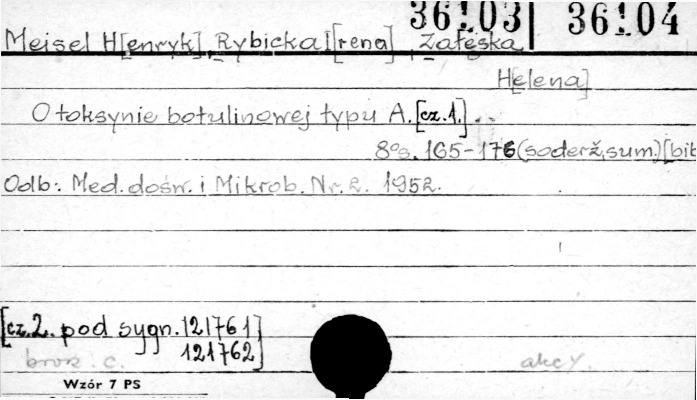 36!03 36!04
Meisel H[enryk], Rybicka I[rena], Załęska
H[elena]
O toksynie botulinowej typu A. [cz.1.]
8° s. 165-176 (soderž, sum.) [bib
Odb: Med. dośw. i Mikrob. Nr. 2. 1952.
[cz. 2. pod sygn. 121761]
121762]
brosz. c. akcy.
Wzór 7 PS